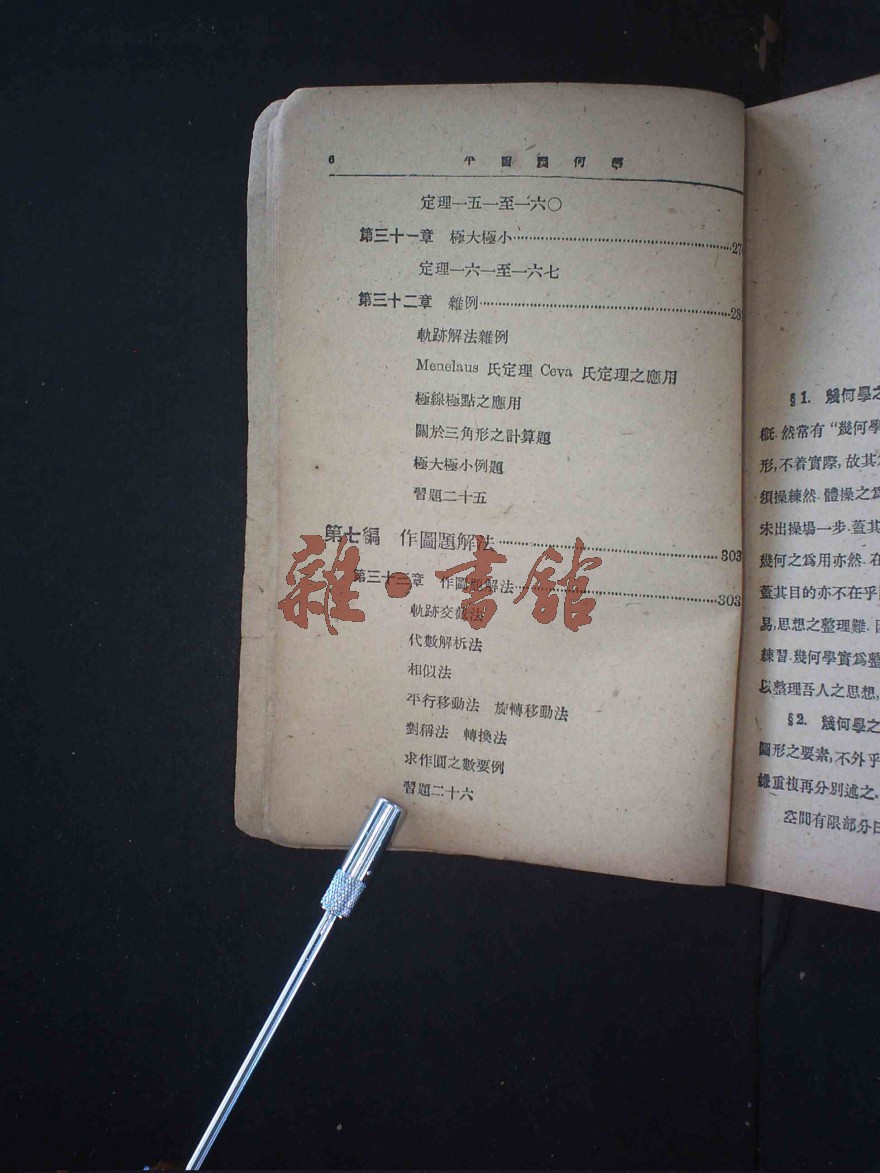 6 平面幾何學
定理一五一至一六〇
第三十一章 極大極小 27
定理一六一至一六七
第三十二章 雜例 28
軌跡解法雜例
Menelaus 氏定理 Ceva 氏定理之應用
極線極點之應用
關於三角形之計算題
極大極小例題
習題二十五
第七編 作圖題解法 303
第三十三章 作圖題解法 303
軌跡交截法
代數解析法
相似法
平行移動法 旋轉移動法
對稱法 轉換法
求作圓之數要例
習題二十六
雜·書館
§1. 幾何學之
概. 然常有“幾何學
形, 不着實際, 故其
須操練然. 體操之爲
未出操場一步. 蓋其
幾何之爲用亦然. 在
蓋其目的亦不在乎
易, 思想之整理難.
練習. 幾何學實爲整
以整理吾人之思想,
§2. 幾何學之
圖形之要素, 不外乎
嫌重複再分別述之.
空間有限部分曰